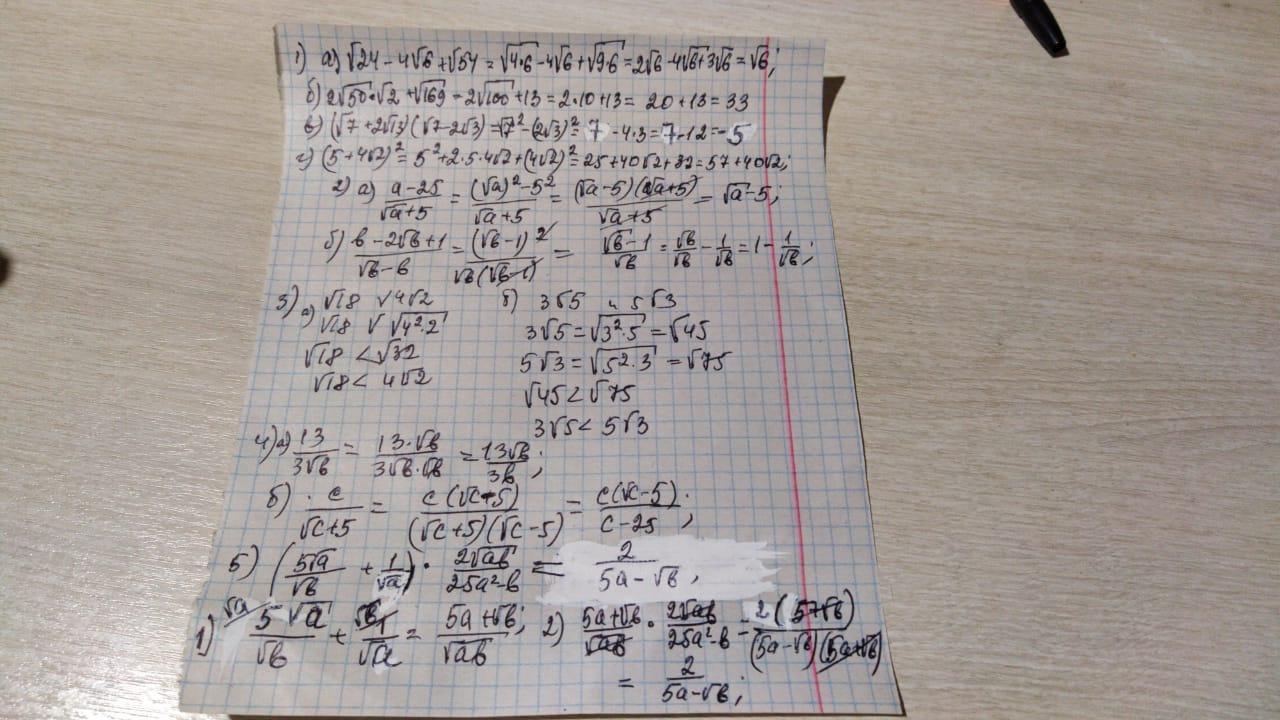 1) а) √24 - 4√6 + √54 = √4·6 - 4√6 + √9·6 = 2√6 - 4√6 + 3√6 = √6;
б) 2√50·√2 + √169 - 2√100 + 13 = 2·10 + 13 = 20 + 13 = 33
в) (√7 + 2√3)(√7 - 2√3) = √7² - (2√3)² = 7 - 4·3 = 7 - 12 = -5
г) (5 + 4√2)² = 5² + 2·5·4√2 + (4√2)² = 25 + 40√2 + 32 = 57 + 40√2;
2) а) (a - 25)/(√a + 5) = ((√a)² - 5²)/(√a + 5) = ((√a - 5)(√a + 5))/(√a + 5) = √a - 5;
б) (в - 2√в + 1)/(√в - в) = (√в - 1)²/(√в(√в - 1)) = (√в - 1)/√в = √в/√в - 1/√в = 1 - 1/√в;
3) а) √18 √ 4√2
√18 √ √4²·2
√18 < √32
√18 < 4√2
б) 3√5 и 5√3
3√5 = √3²·5 = √45
5√3 = √5²·3 = √75
√45 < √75
3√5 < 5√3
4) а) 13/(3√в) = (13·√в)/(3√в·√в) = 13√в/3в;
б) c/(√c + 5) = c(√c + 5)/((√c + 5)(√c - 5)) = c(√c - 5)/(c - 25);
5) (5√a/√в + 1/√a) · 2√aв/(25a² - в) = 2/(5a - √в);
1) √a 5√a/√в + √в 1/√a = (5a + √в)/√aв; 2) (5a + √в)/√aв · 2√aв/(25a² - в) = 2(57√в)/((5a - √в)(5a + √в))
= 2/(5a - √в);